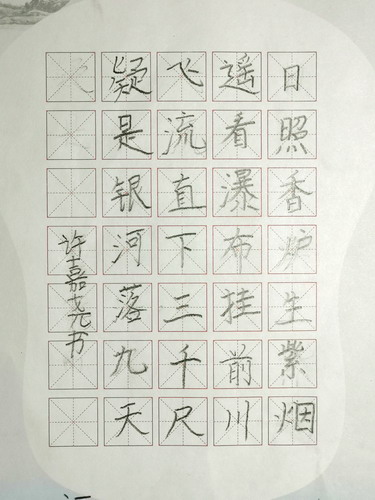 日照香炉生紫烟
遥看瀑布挂前川
飞流直下三千尺
疑是银河落九天
许嘉尧书